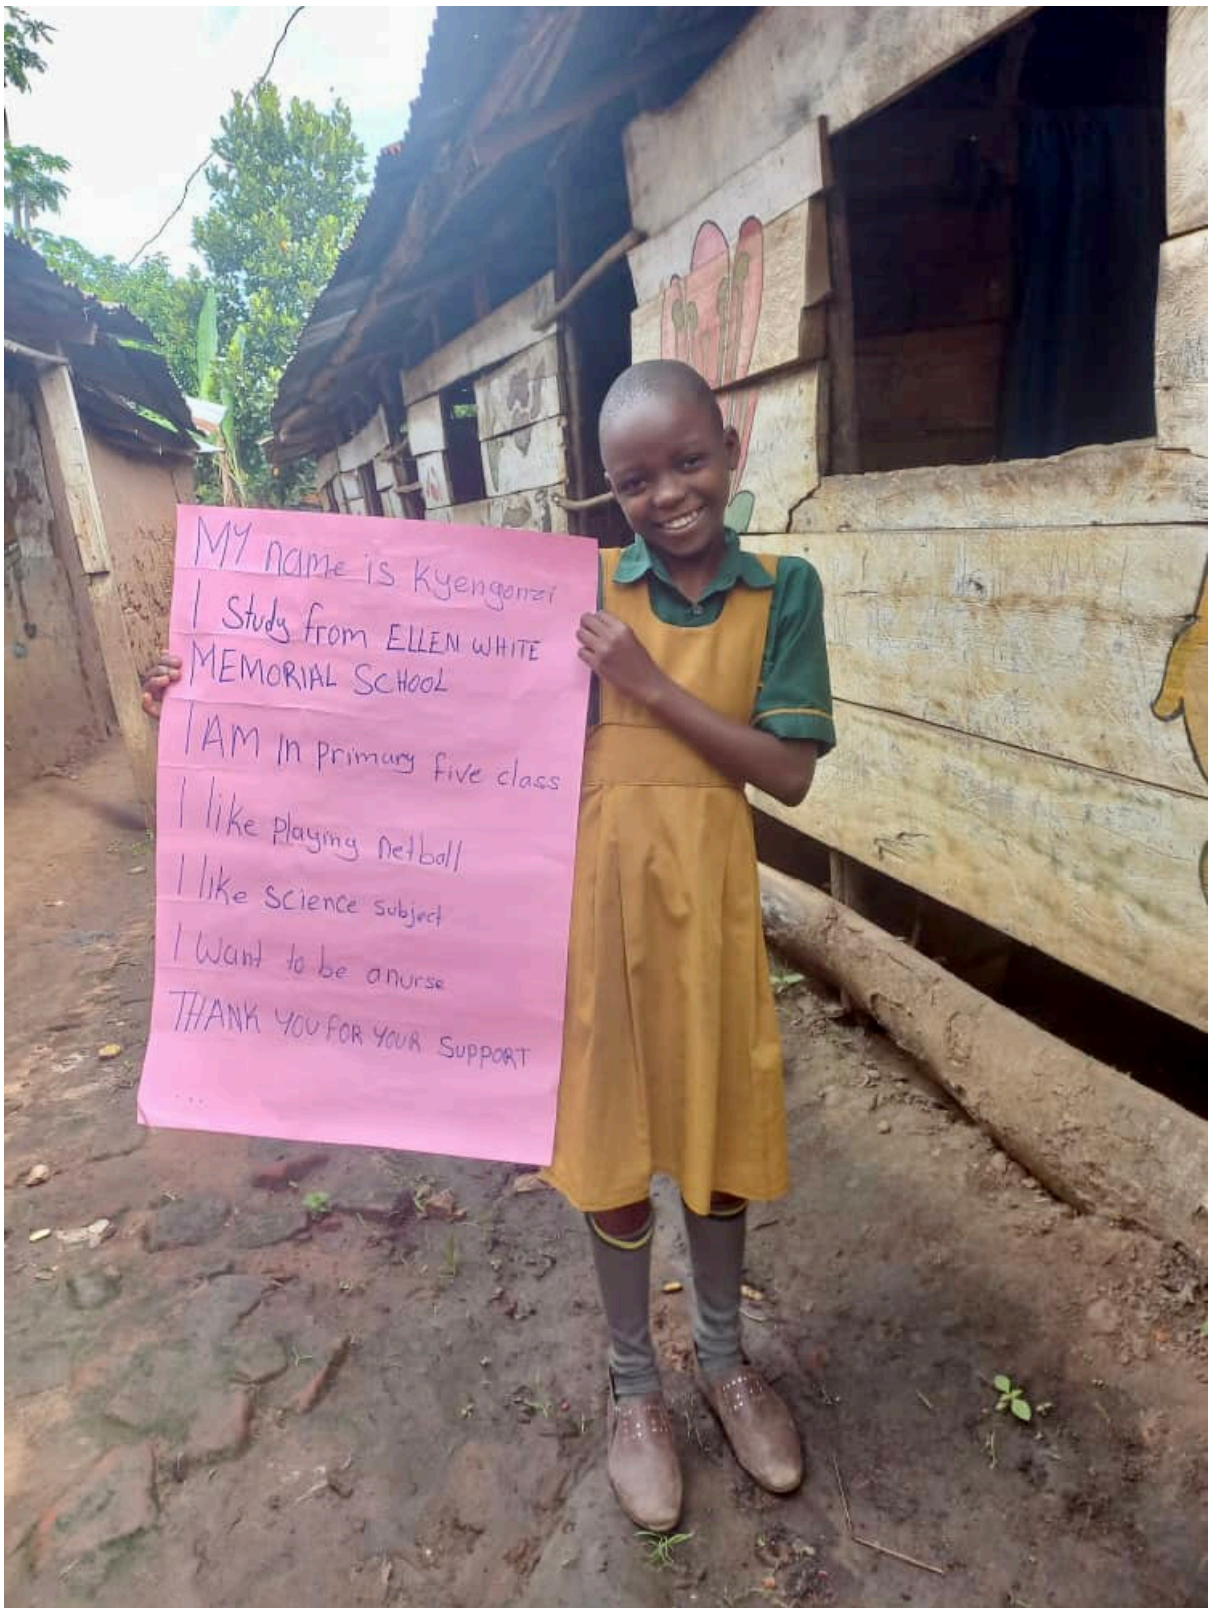 MY name is Kyengonzi
I study from ELLEN WHITE
MEMORIAL SCHOOL
I AM In primary five class
I like playing netball
I like science subject
I want to be a nurse
THANK YOU FOR YOUR SUPPORT
...